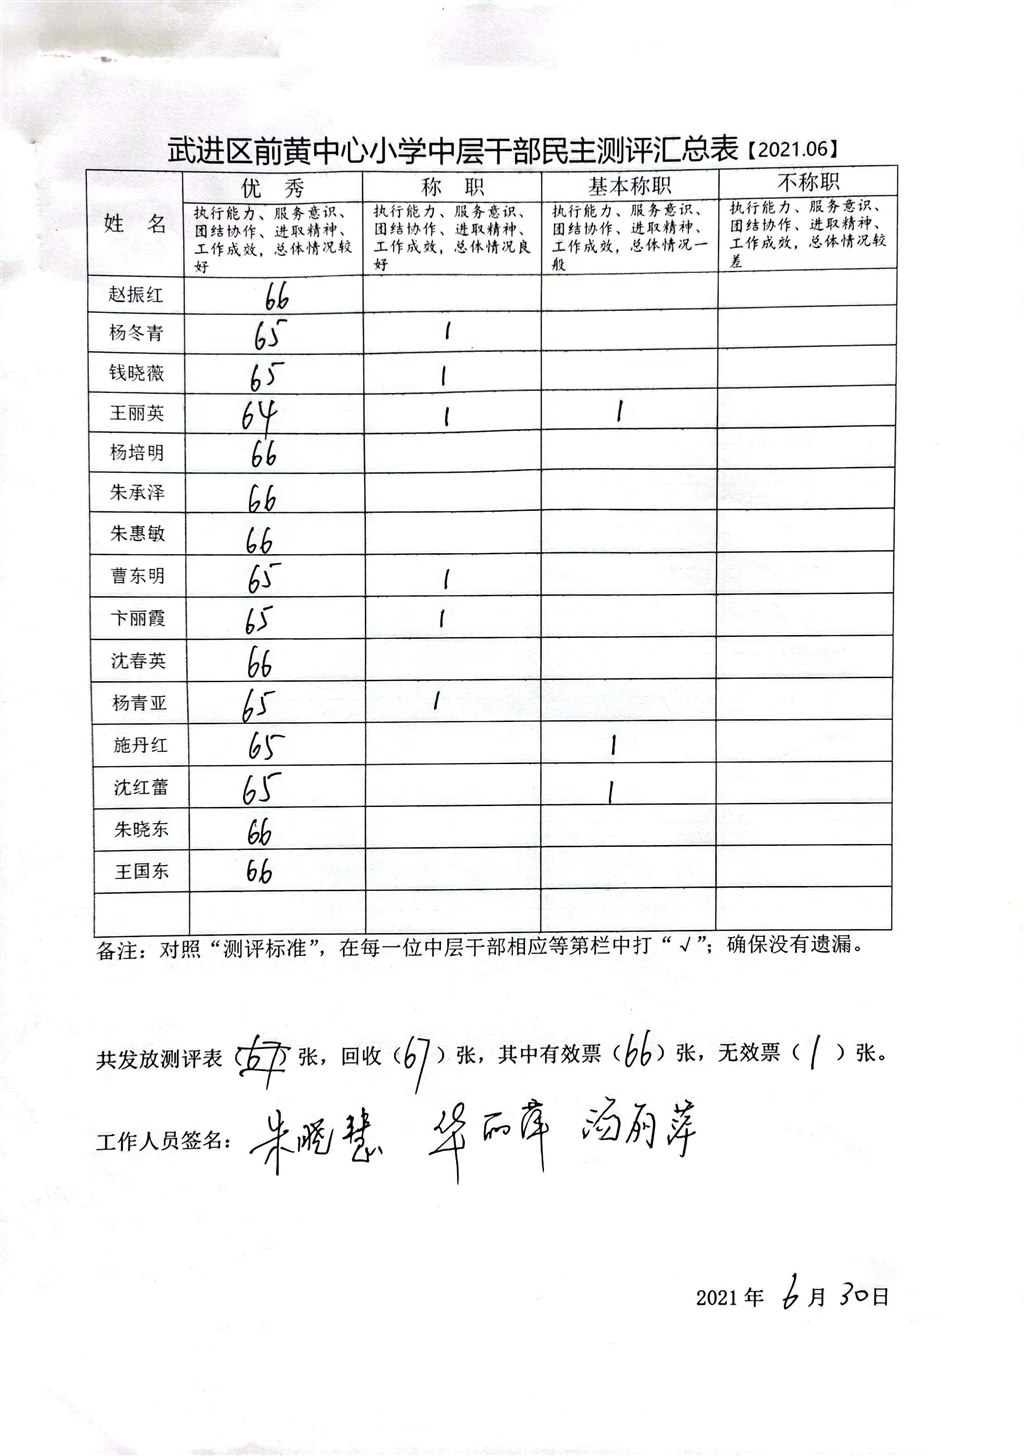 武进区前黄中心小学中层干部民主测评汇总表【2021.06】
姓 名 优 秀 称 职 基本称职 不称职
执行能力、服务意识、团结协作、进取精神、工作成效，总体情况较好
执行能力、服务意识、团结协作、进取精神、工作成效，总体情况良好
执行能力、服务意识、团结协作、进取精神、工作成效，总体情况一般
执行能力、服务意识、团结协作、进取精神、工作成效，总体情况较差
赵振红 66
杨冬青 65 1
钱晓薇 65 1
王丽英 64 1 1
杨培明 66
朱承泽 66
朱惠敏 66
曹东明 65 1
卞丽霞 65 1
沈春英 66
杨青亚 65 1
施丹红 65 1
沈红蕾 65 1
朱晓东 66
王国东 66
备注：对照“测评标准”，在每一位中层干部相应等第栏中打“√”；确保没有遗漏。
共发放测评表（67）张，回收（67）张，其中有效票（66）张，无效票（1）张。
工作人员签名：朱晓慧 华丽萍 汤丽萍
2021年6月30日